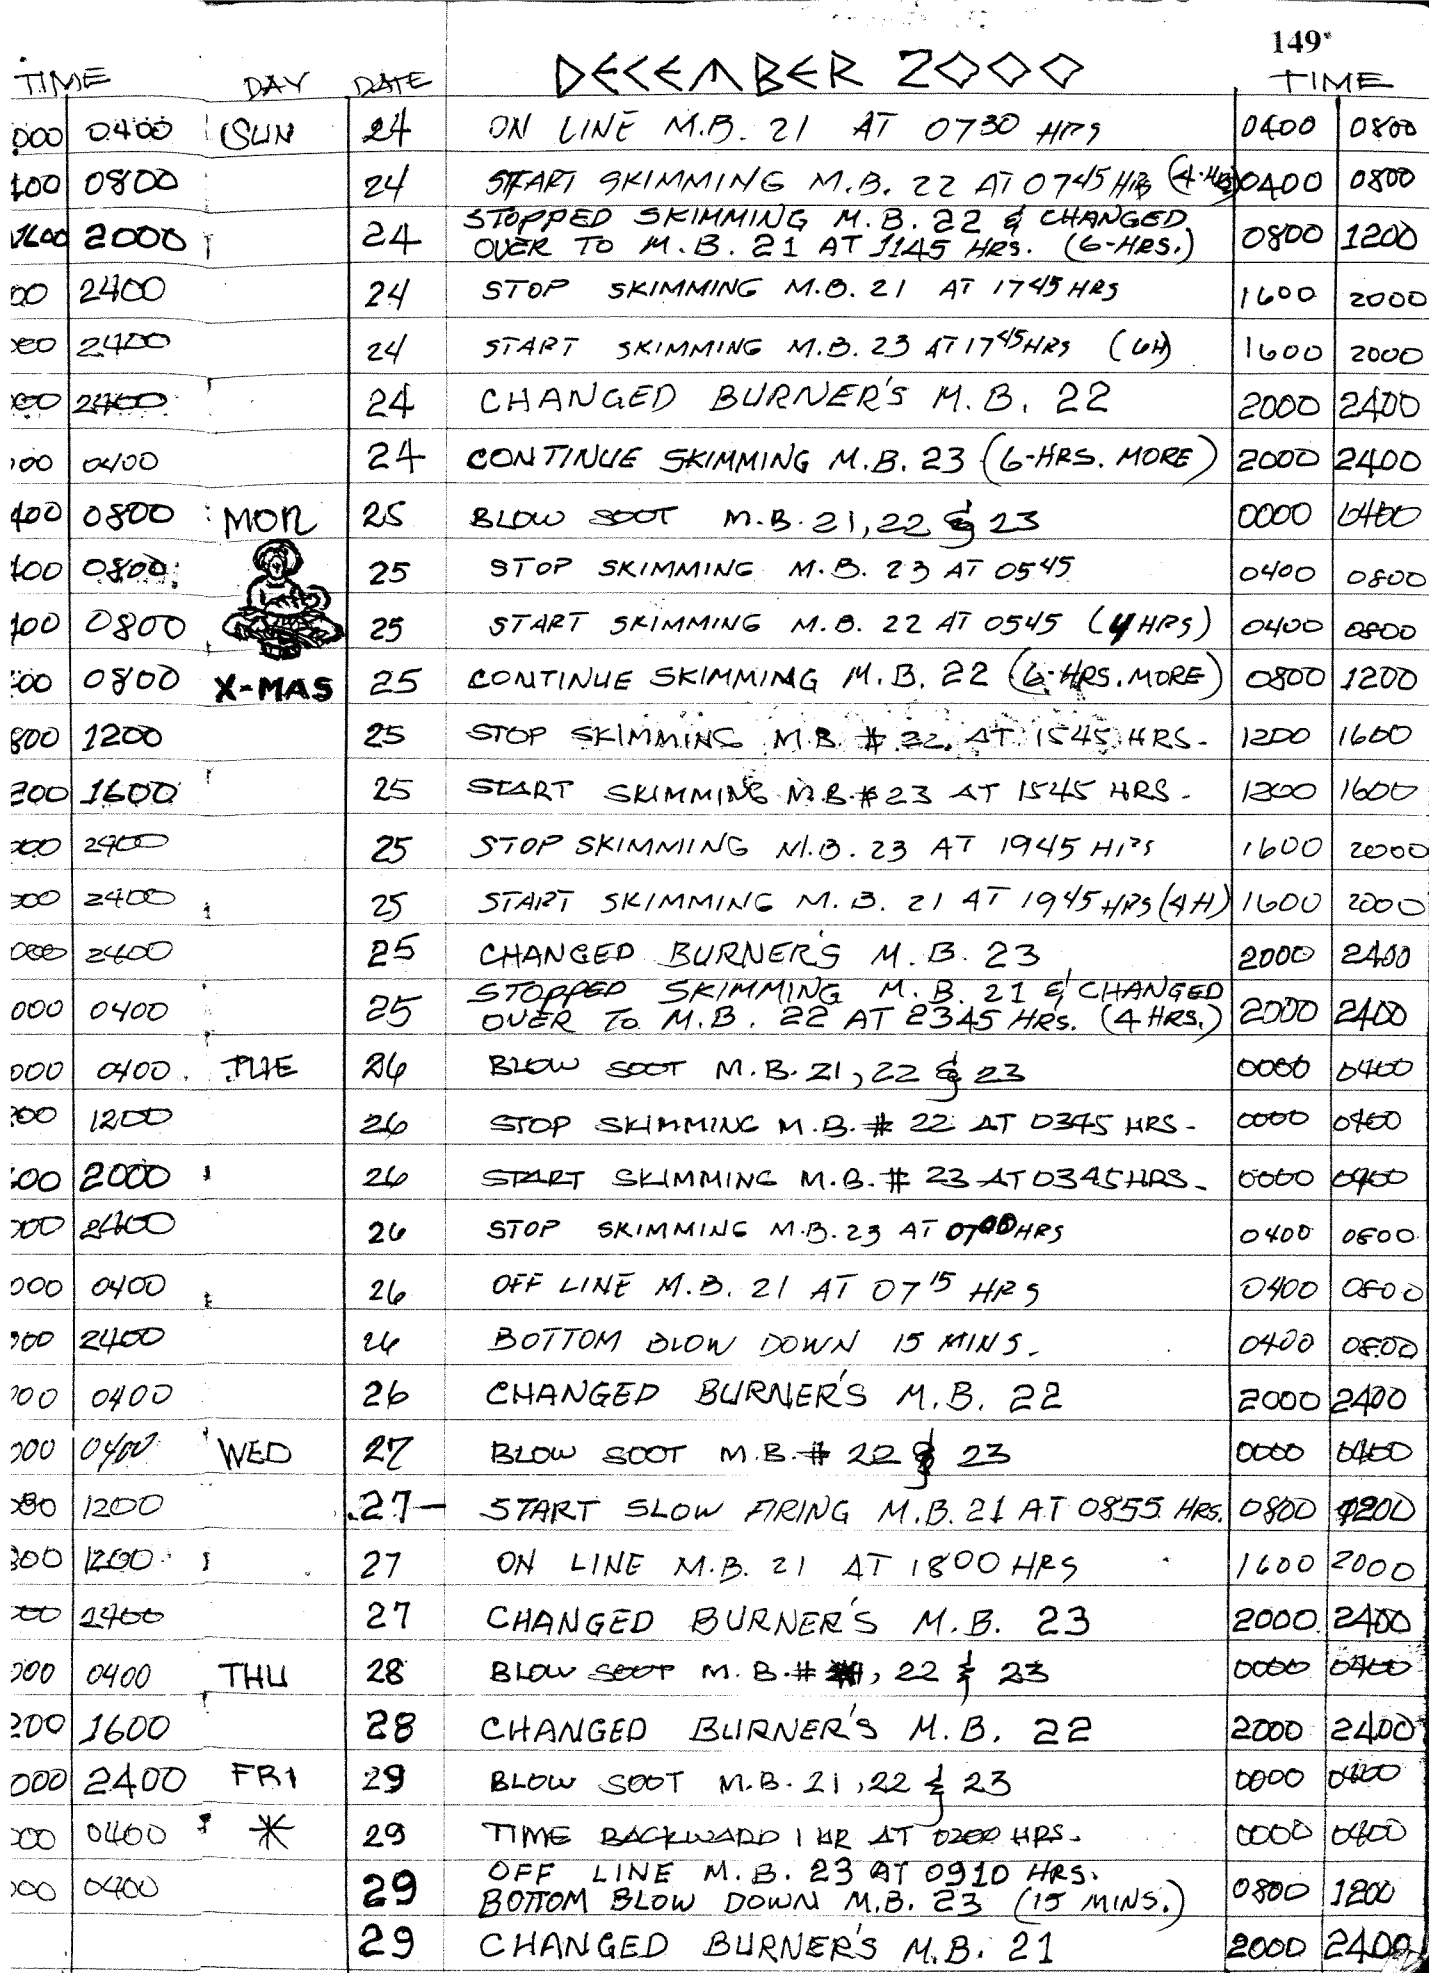 149
DECEMBER 2000
TIME DAY DATE TIME
000 0400 SUN 24 ON LINE M.B. 21 AT 0730 HRS 0400 0800
400 0800 24 START SKIMMING M.B. 22 AT 0745 HRS (4-HRS) 0400 0800
1600 2000 24 STOPPED SKIMMING M.B. 22 & CHANGED
OVER TO M.B. 21 AT 1145 HRS. (6-HRS.) 0800 1200
00 2400 24 STOP SKIMMING M.B. 21 AT 1745 HRS 1600 2000
000 2400 24 START SKIMMING M.B. 23 AT 1745 HRS (6H) 1600 2000
000 2400 24 CHANGED BURNER'S M.B. 22 2000 2400
000 0400 24 CONTINUE SKIMMING M.B. 23 (6-HRS. MORE) 2000 2400
400 0800 MON 25 BLOW SOOT M.B. 21, 22 & 23 0000 0400
400 0800 25 STOP SKIMMING M.B. 23 AT 0545 0400 0800
400 0800 25 START SKIMMING M.B. 22 AT 0545 (4 HRS) 0400 0800
00 0800 X-MAS 25 CONTINUE SKIMMING M.B. 22 (6-HRS. MORE) 0800 1200
800 1200 25 STOP SKIMMING M.B. # 22 AT 1545 HRS. 1200 1600
200 1600 25 START SKIMMING M.B. # 23 AT 1545 HRS. 1200 1600
000 2400 25 STOP SKIMMING M.B. 23 AT 1945 HRS 1600 2000
000 2400 25 START SKIMMING M.B. 21 AT 1945 HRS (4H) 1600 2000
000 2400 25 CHANGED BURNER'S M.B. 23 2000 2400
000 0400 25 STOPPED SKIMMING M.B. 21 & CHANGED
OVER TO M.B. 22 AT 2345 HRS. (4 HRS.) 2000 2400
000 0400 TUE 26 BLOW SOOT M.B. 21, 22 & 23 0000 0400
00 1200 26 STOP SKIMMING M.B. # 22 AT 0345 HRS. 0000 0400
600 2000 26 START SKIMMING M.B. # 23 AT 0345 HRS. 0000 0400
000 2400 26 STOP SKIMMING M.B. 23 AT 0700 HRS 0400 0800
000 0400 26 OFF LINE M.B. 21 AT 0715 HRS 0400 0800
000 2400 26 BOTTOM BLOW DOWN 15 MINS. 0400 0800
000 0400 26 CHANGED BURNER'S M.B. 22 2000 2400
000 0400 WED 27 BLOW SOOT M.B. # 22 & 23 0000 0400
1200 27 START SLOW FIRING M.B. 21 AT 0855 HRS. 0800 1200
800 1200 27 ON LINE M.B. 21 AT 1800 HRS 1600 2000
000 2400 27 CHANGED BURNER'S M.B. 23 2000 2400
000 0400 THU 28 BLOW SOOT M.B. # , 22 & 23 0000 0400
200 1600 28 CHANGED BURNER'S M.B. 22 2000 2400
000 2400 FRI 29 BLOW SOOT M.B. 21, 22 & 23 0000 0400
000 0400 * 29 TIME BACKWARD 1 HR AT 0200 HRS. 0000 0400
000 0400 29 OFF LINE M.B. 23 AT 0910 HRS.
BOTTOM BLOW DOWN M.B. 23 (15 MINS.) 0800 1200
29 CHANGED BURNER'S M.B. 21 2000 2400